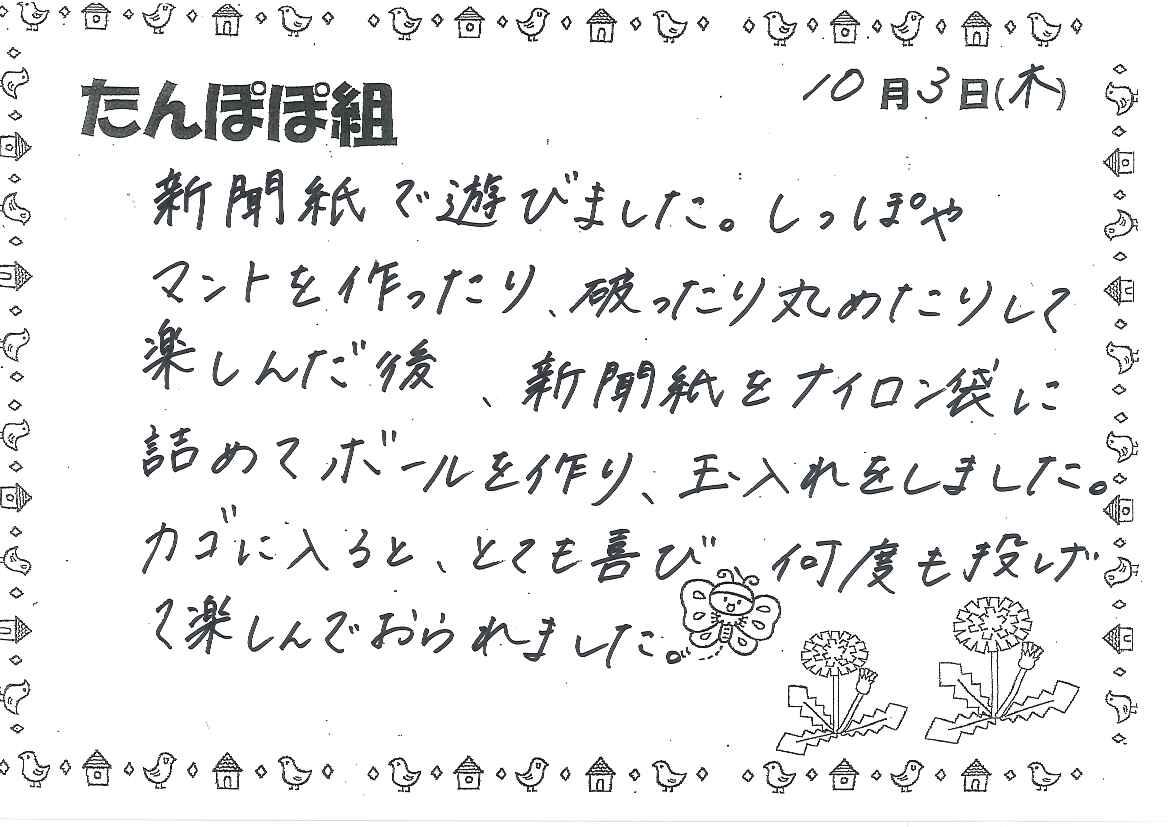 たんぽぽ組
10月3日(木)
新聞紙で遊びました。しっぽや
マントを作ったり、破ったり丸めたりして
楽しんだ後、新聞紙をナイロン袋に
詰めてボールを作り、玉入れをしました。
カゴに入ると、とても喜び 何度も投げ
て楽しんでおられました。